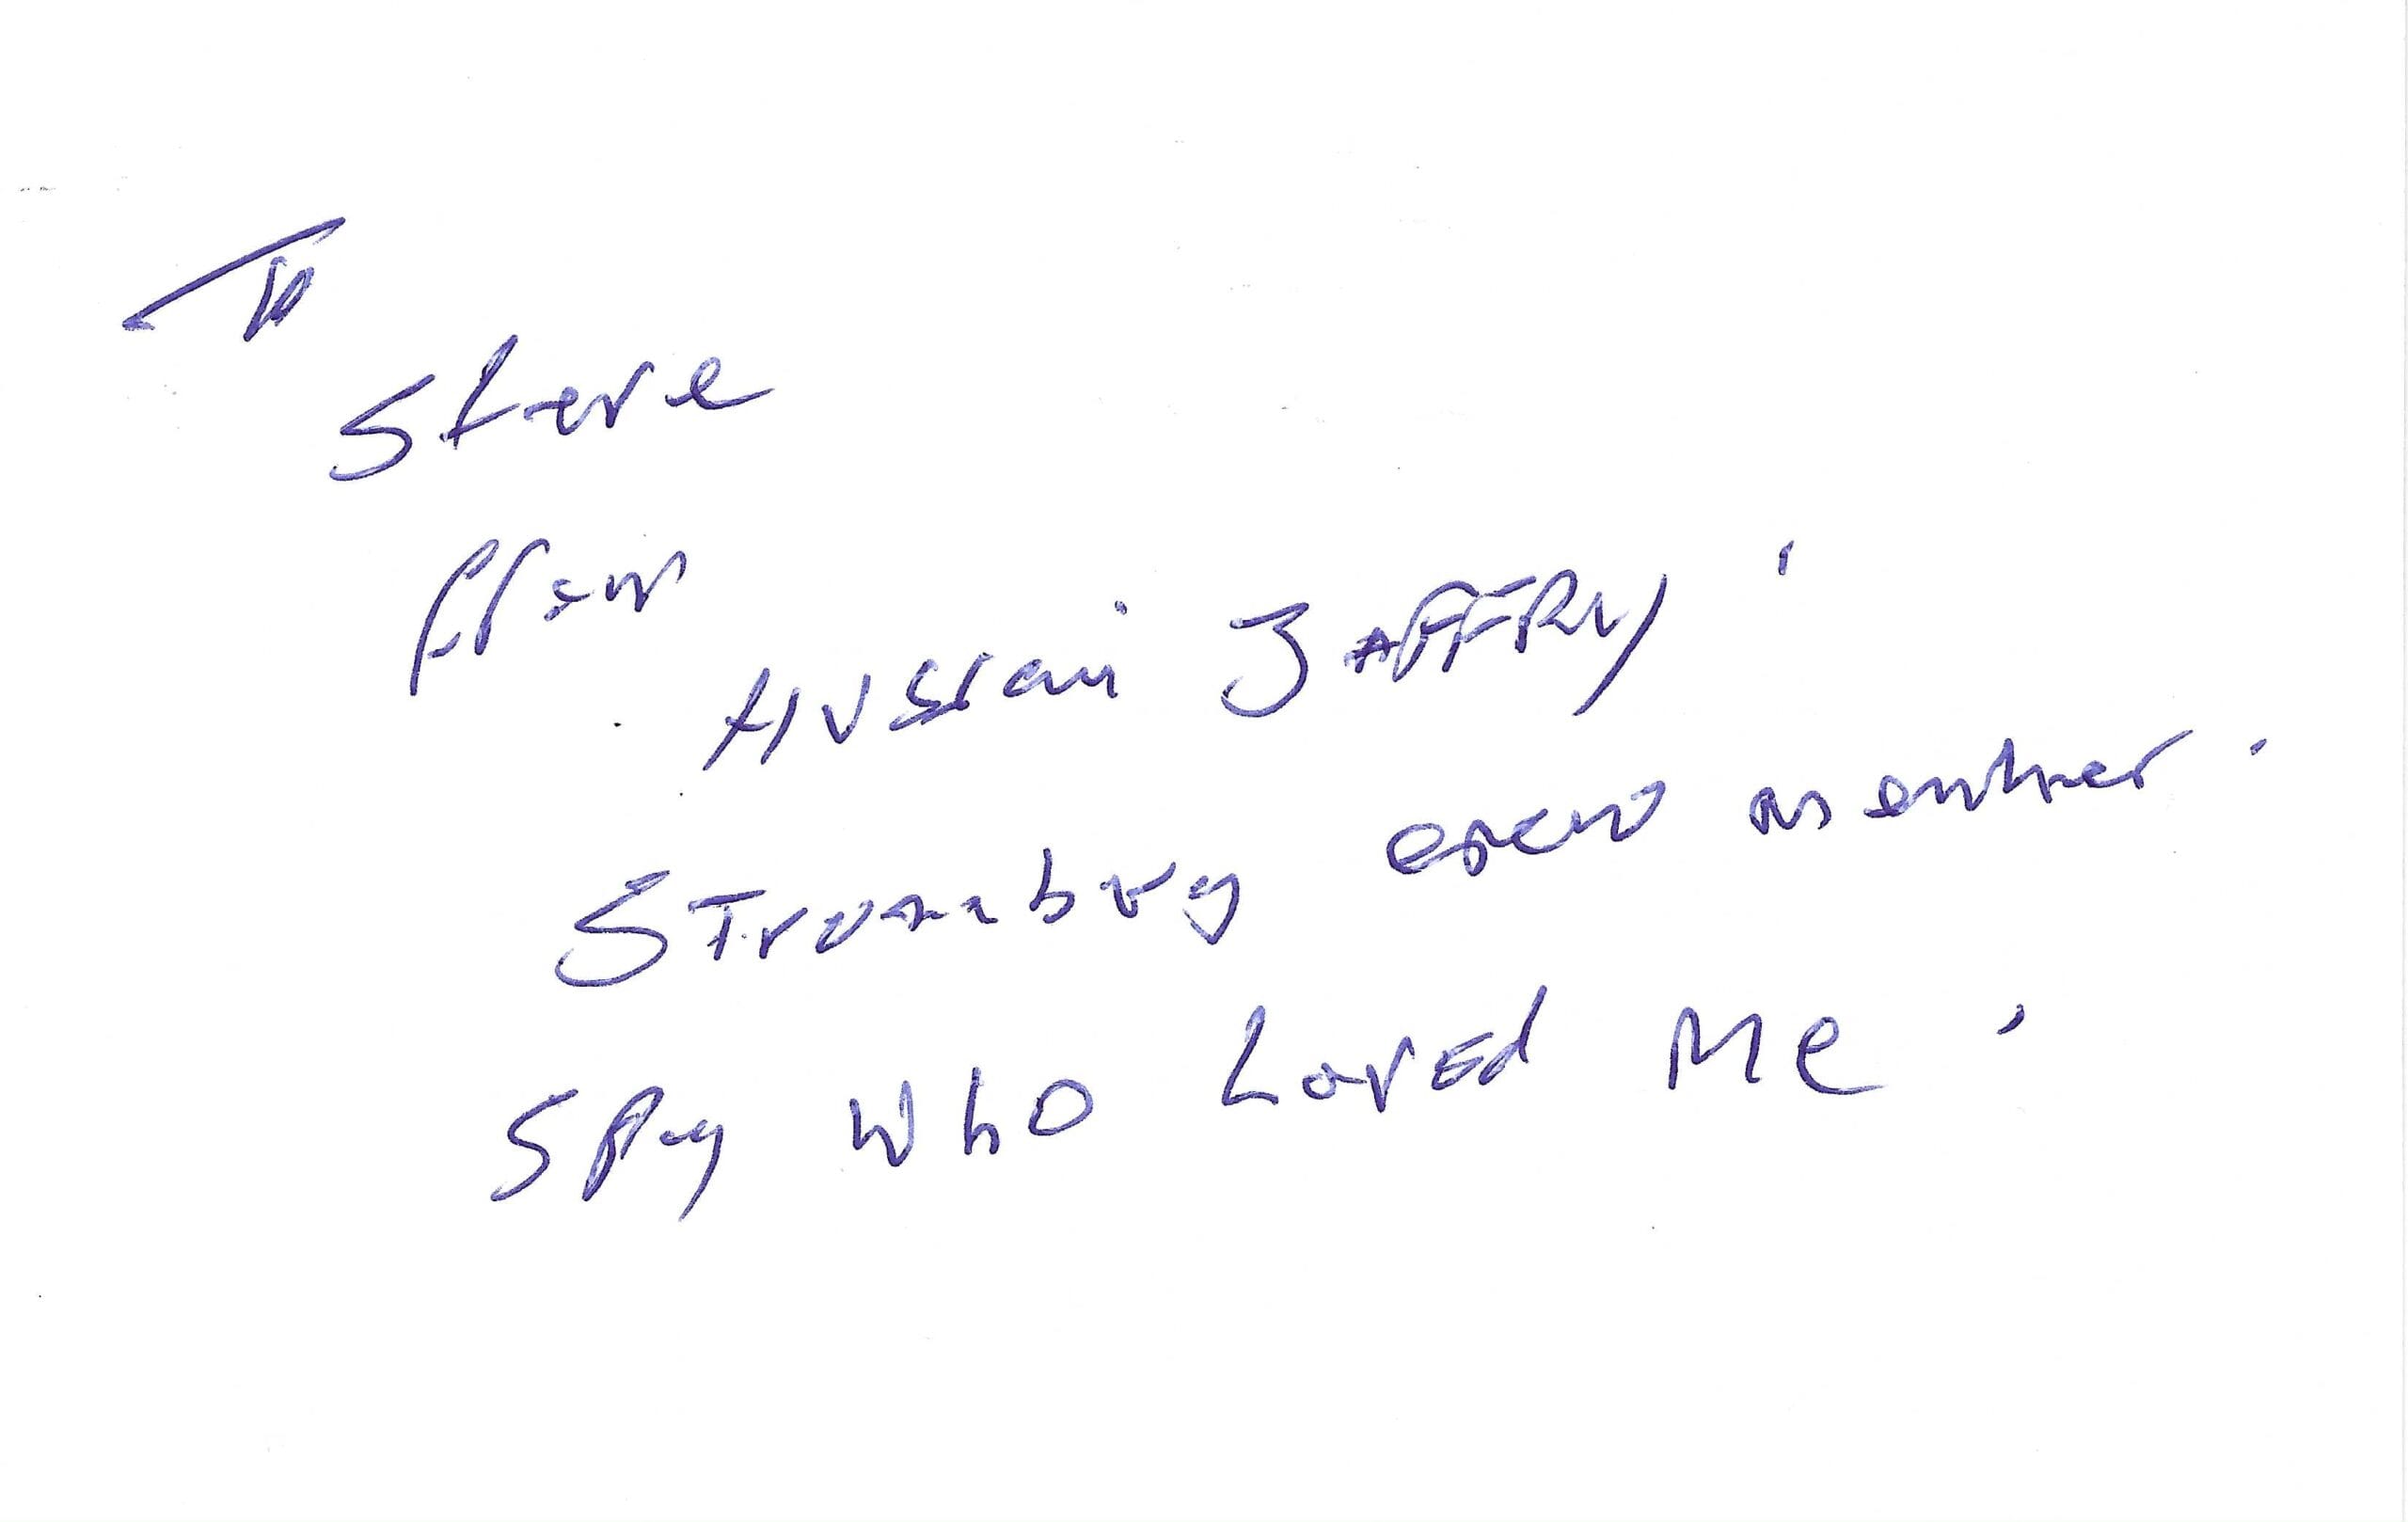 To
Steve
from
Hussain JAFFRY.
Stromburg crew member.
Spy who Loved Me.